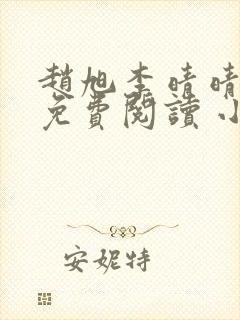 趙旭李晴晴
免費閱讀小
安妮特